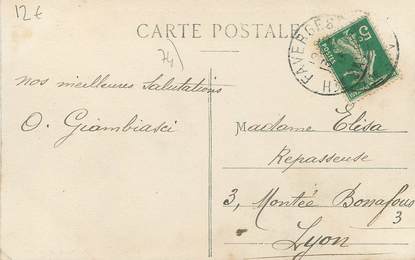 12€
CARTE POSTALE
74)
FAVERGES
5c
nos meilleures salutations
O. Giambiasci
Madame Elisa
Repasseuse
3, Montée Bonafous
3
Lyon